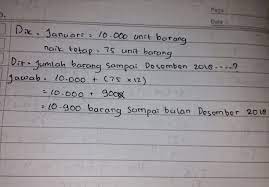 Page :
Date :
Dik = Januari = 10.000 unit barang
naik tetap = 75 unit barang
Dit = Jumlah barang sampai Desember 2018 ----- ?
Jawab = 10.000 + (75 x 12)
= 10.000 + 900
= 10.900 barang sampai bulan Desember 2018